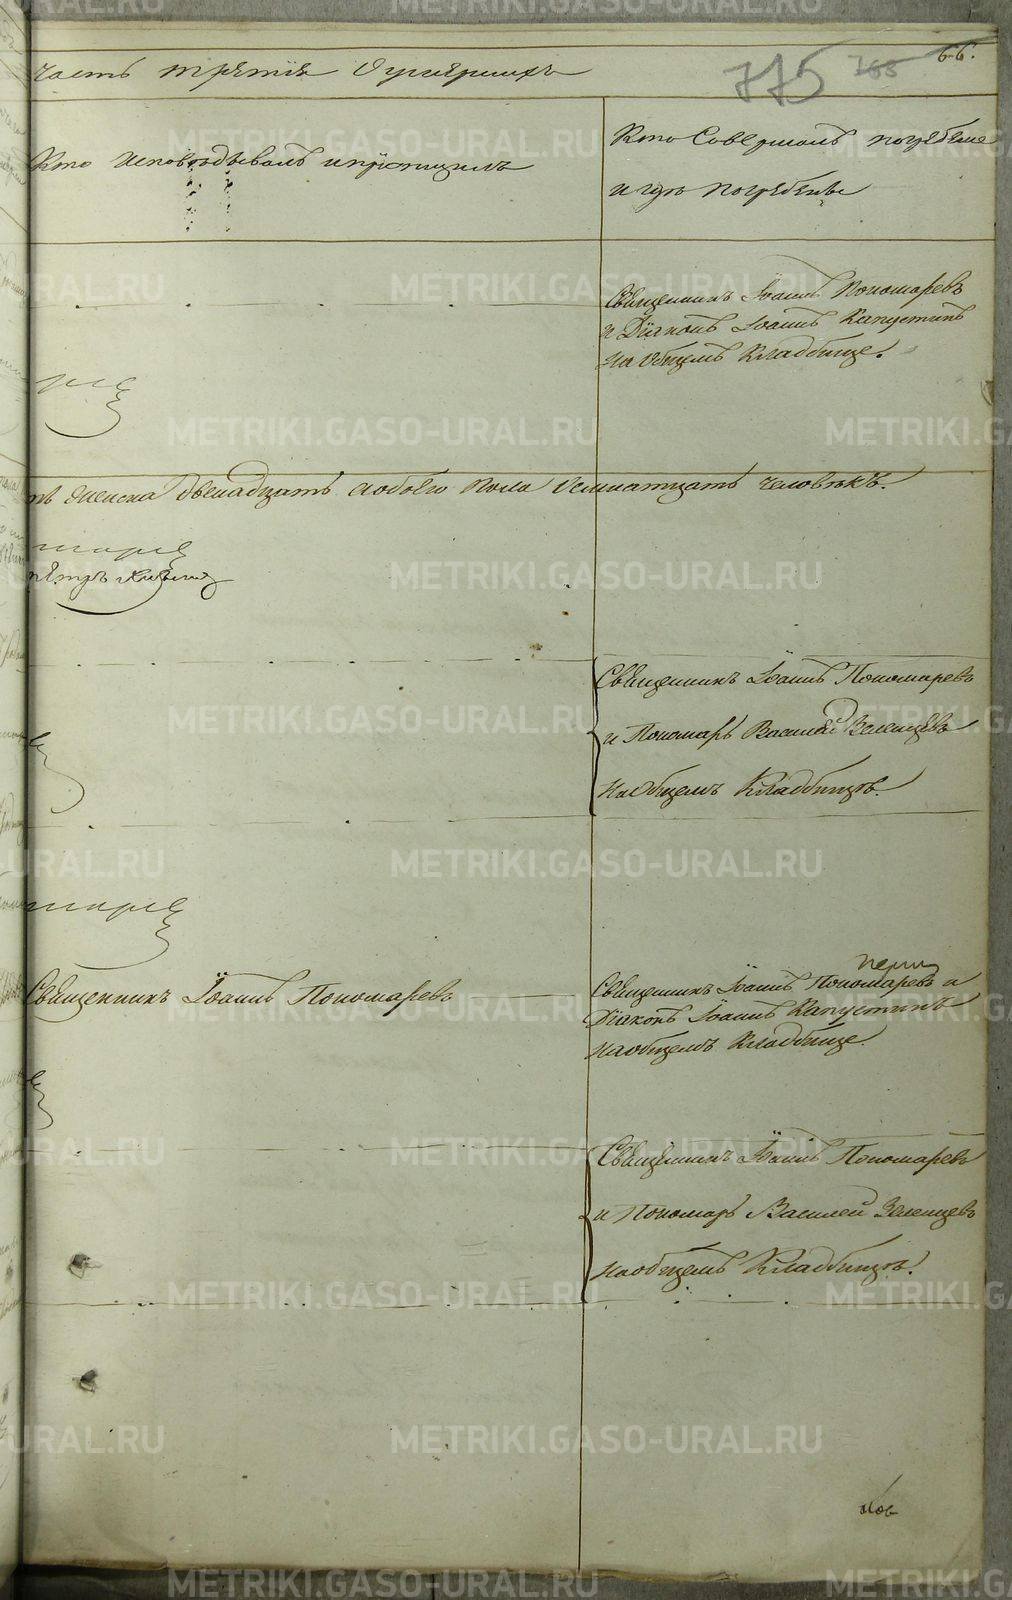 часть третія Оумершихъ
775
765
66.
Кто исповѣдывалъ и пріобщилъ
Кто Совершалъ погребеніе
и где погребены
Священникъ Іоаннъ Пономаревъ
и Діаконъ Іоаннъ Капустинъ
на Общемъ Кладбище.
женска двенадцать, а обоего пола человѣкъ.
Петръ
Священникъ Іоаннъ Пономаревъ
и Пономарь Василей Зеленцевъ
на Общемъ Кладбищѣ.
Священникъ Іоаннъ Пономаревъ
Священникъ Іоаннъ Пономаревъ и
Діаконъ Іоаннъ Капустинъ
на общемъ Кладбище.
Священникъ Іоаннъ Пономаревъ
и Пономарь Василей Зеленцевъ
на общемъ Кладбищѣ.
METRIKI.GASO-URAL.RU